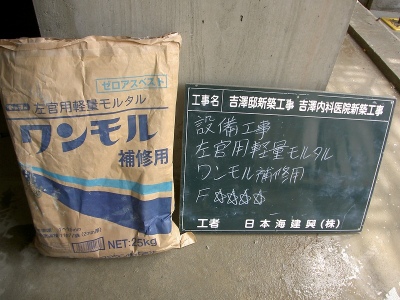 ゼロアスベスト
左官用軽量モルタル
ワンモル
補修用
NET:25kg
工事名 吉澤邸新築工事 吉澤内科医院新築工事
設備工事
左官用軽量モルタル
ワンモル補修用
F☆☆☆☆
工者 日本海建興(株)